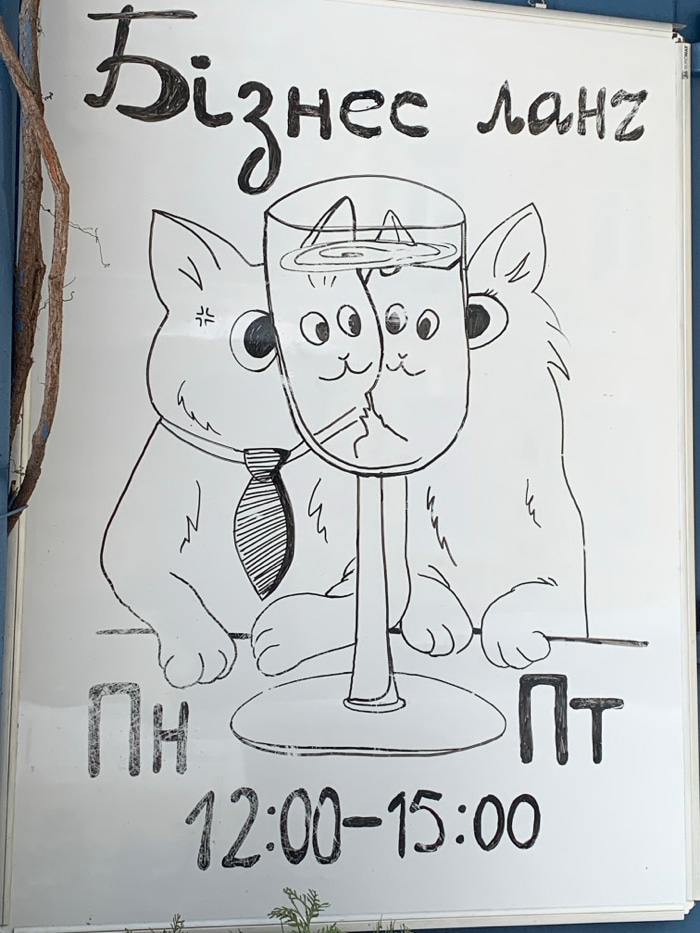 Бізнес ланч
Пн Пт
12:00-15:00